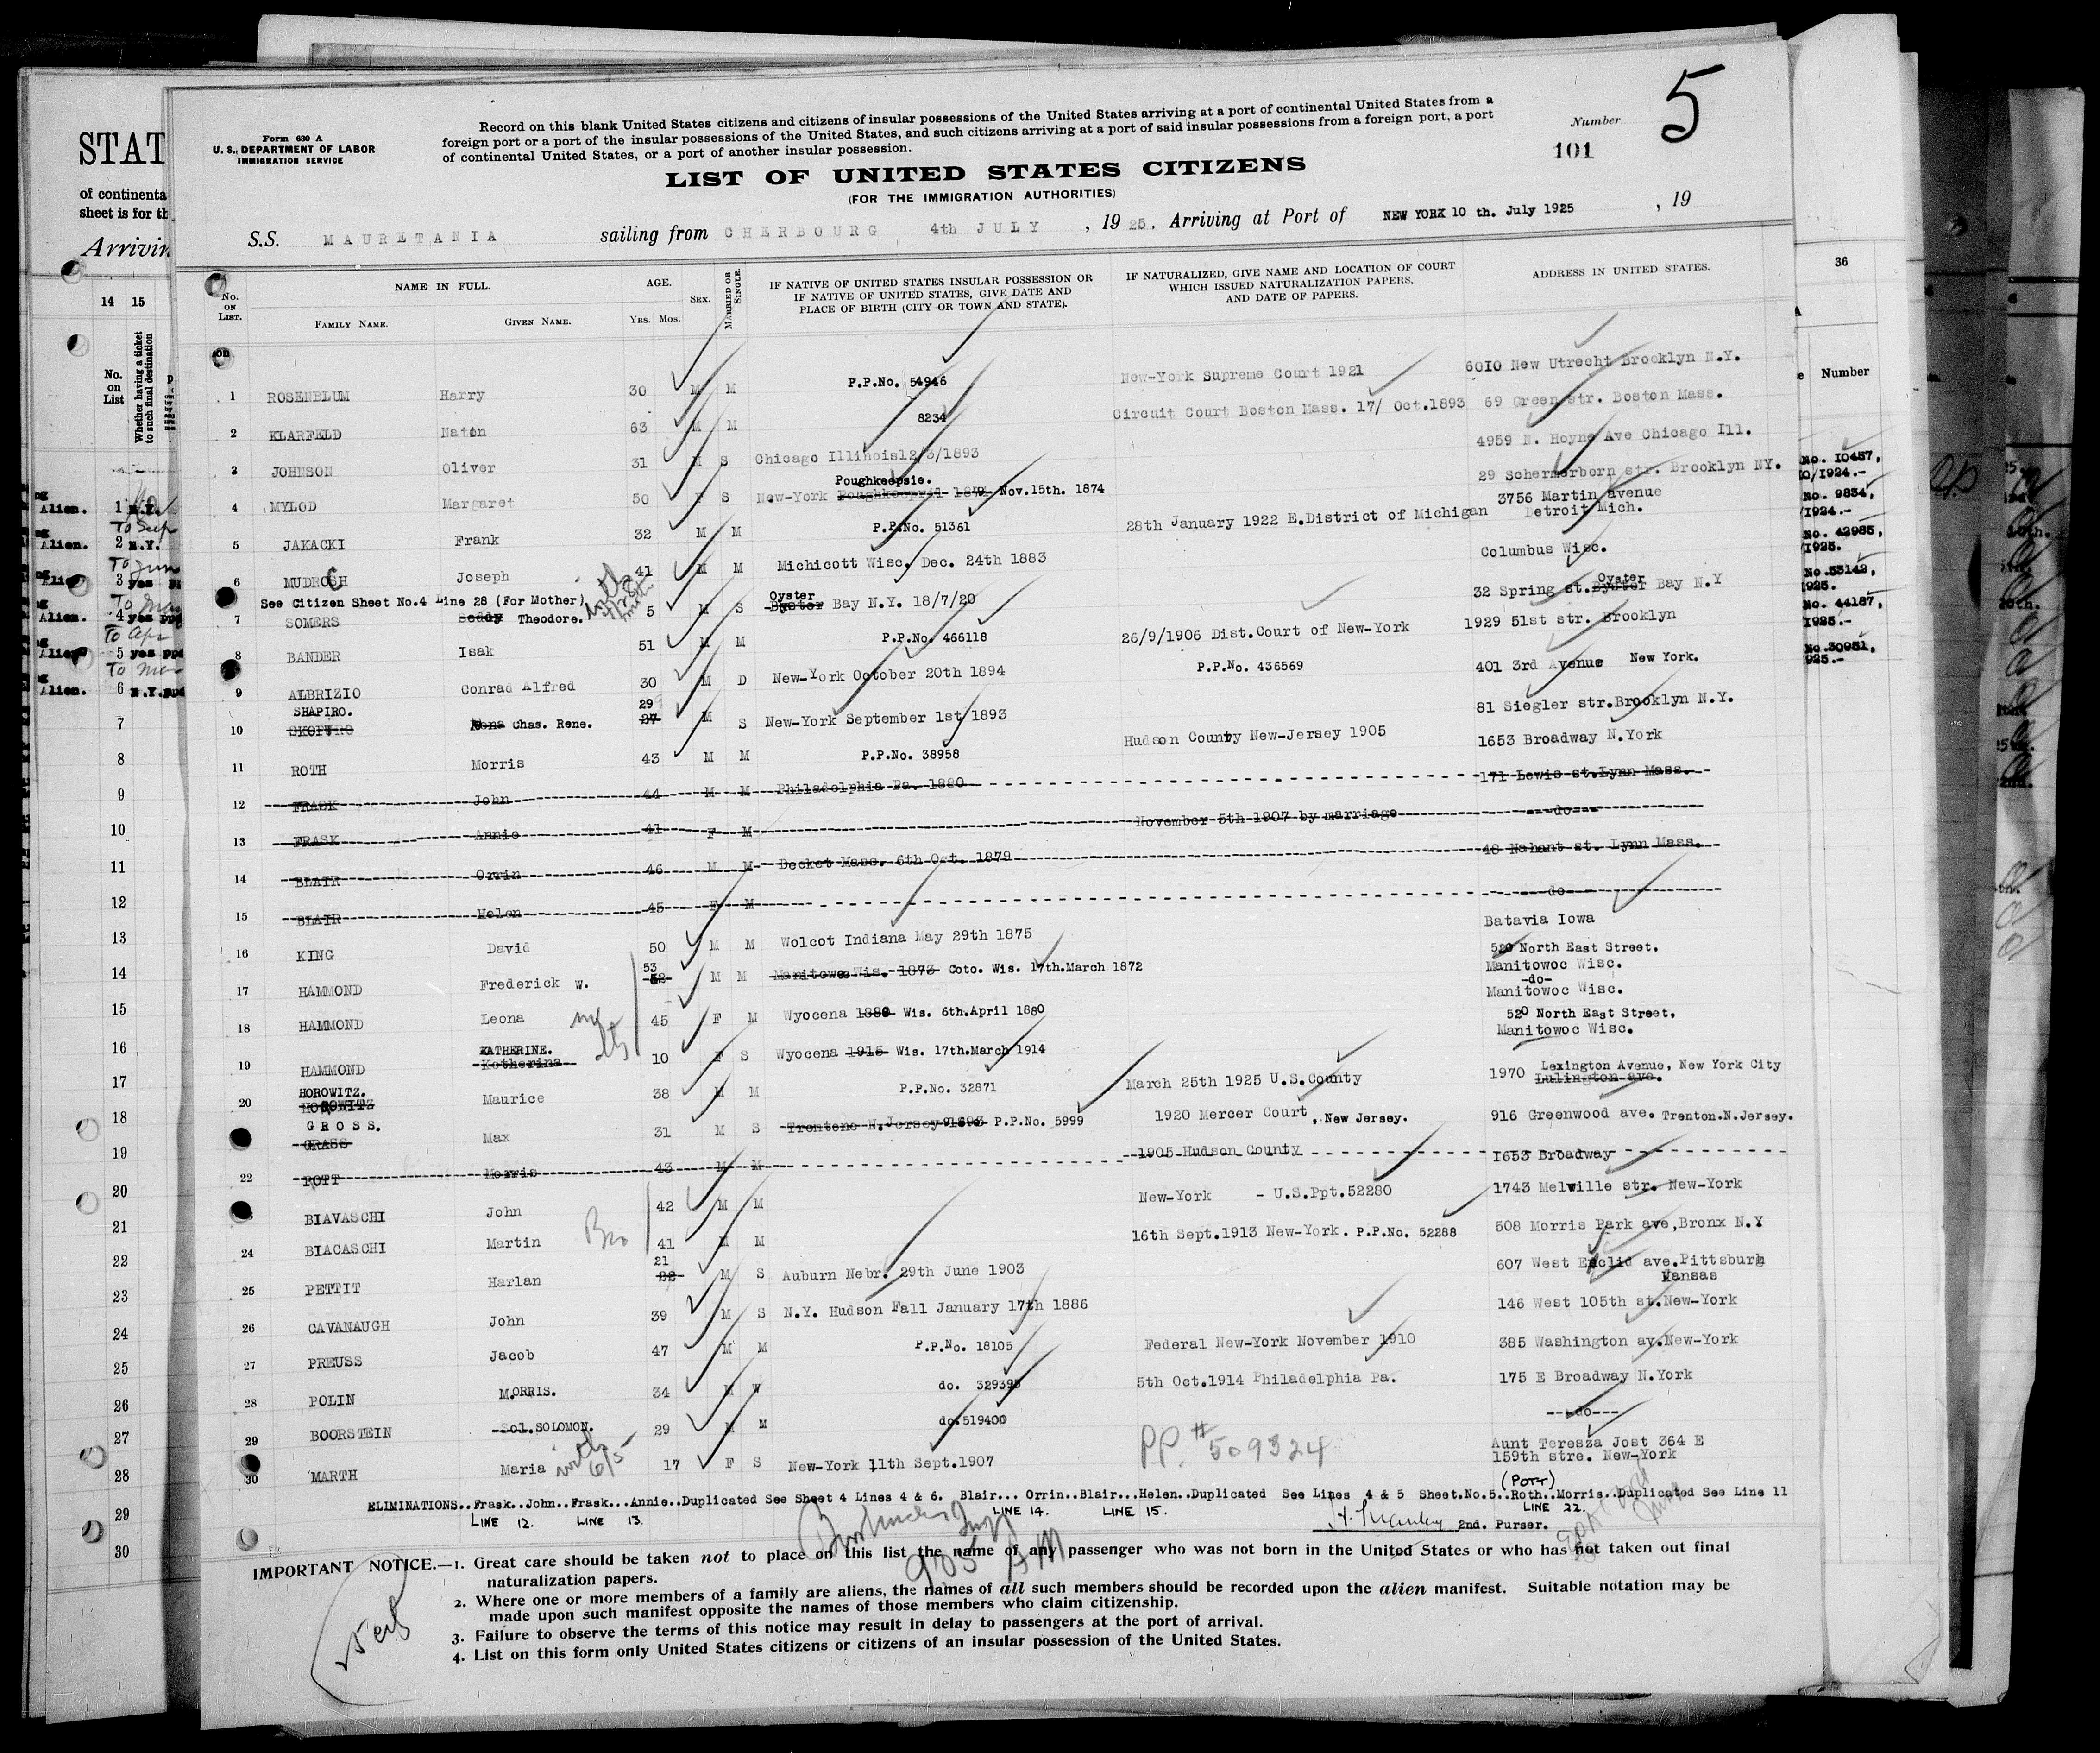 5
Form 630 A
U. S. DEPARTMENT OF LABOR
IMMIGRATION SERVICE
Record on this blank United States citizens and citizens of insular possessions of the United States arriving at a port of continental United States from a
foreign port or a port of the insular possessions of the United States, and such citizens arriving at a port of said insular possessions from a foreign port, a port
of continental United States, or a port of another insular possession.
Number
101
LIST OF UNITED STATES CITIZENS
(FOR THE IMMIGRATION AUTHORITIES)
S.S. MAURETANIA sailing from CHERBOURG 4th JULY, 1925, Arriving at Port of NEW YORK 10 th. July 1925, 19
No. ON LIST. NAME IN FULL. FAMILY NAME. GIVEN NAME. AGE. YRS. MOS. SEX. MARRIED OR SINGLE. IF NATIVE OF UNITED STATES INSULAR POSSESSION OR IF NATIVE OF UNITED STATES, GIVE DATE AND PLACE OF BIRTH (CITY OR TOWN AND STATE). IF NATURALIZED, GIVE NAME AND LOCATION OF COURT WHICH ISSUED NATURALIZATION PAPERS, AND DATE OF PAPERS. ADDRESS IN UNITED STATES.
1 ROSENBLUM Harry 30 M M P.P.No. 54946 New-York Supreme Court 1921 6010 New Utrecht Brooklyn N.Y.
2 KLARFELD Naton 63 M M 8234 Circuit Court Boston Mass. 17/ Oct.1893 69 Green str. Boston Mass.
3 JOHNSON Oliver 31 M S Chicago Illinois12/3/1893 4959 N. Hoyne Ave Chicago Ill.
4 MYLOD Margaret 50 F S New-York Poughkeepsie. Nov.15th. 1874 29 Schermerborn str. Brooklyn NY.
5 JAKACKI Frank 32 M M P.P.No. 51361 28th January 1922 E.District of Michigan 3756 Martin avenue Detroit Mich.
6 MUDROCH Joseph 41 M M Michicott Wisc. Dec. 24th 1883 Columbus Wisc.
See Citizen Sheet No.4 Line 28 (For Mother)
7 SOMERS Teddy Theodore. 5 M S Oyster Bay N.Y. 18/7/20 32 Spring st. Oyster Bay N.Y
8 BANDER Isak 51 M M P.P.No. 466118 26/9/1906 Dist.Court of New-York 1929 51st str. Brooklyn
9 ALBRIZIO Conrad Alfred 30 M D New-York October 20th 1894 P.P.No. 436569 401 3rd Avenue New York.
10 SHAPIRO. Chas. Rene. 29 27 M S New-York September 1st 1893 81 Siegler str.Brooklyn N.Y.
11 ROTH Morris 43 M M P.P.No. 38958 Hudson County New-Jersey 1905 1653 Broadway N.York
12 FRASK John 44 M M Philadelphia Pa. 1880 171 Lewis st.Lynn Mass.
13 FRASK Annie 41 F M November 5th 1907 by marriage ---do---
14 BLAIR Orrin 46 M M Becket Mass. 6th Oct. 1879 48 Nahant st. Lynn Mass.
15 BLAIR Helen 45 F M ---do---
16 KING David 50 M M Wolcot Indiana May 29th 1875 Batavia Iowa
17 HAMMOND Frederick W. 53 52 M M Manitowo Wis. 1873 Coto. Wis. 17th.March 1872 520 North East Street, Manitowoc Wisc.
18 HAMMOND Leona 45 F M Wyocena 1880 Wis. 6th.April 1880 -do- Manitowoc Wisc.
19 HAMMOND KATHERINE. Katherina 10 F S Wyocena 1915 Wis. 17th.March 1914 520 North East Street, Manitowoc Wisc.
20 HOROWITZ. Maurice 38 M M P.P.No. 32871 March 25th 1925 U.S.County 1970 Lexington Avenue, New York City Lulington ave.
GROSS. GRASS Max 31 M S Trentone N.Jersey 1893 P.P.No. 5999 1920 Mercer Court, New Jersey. 916 Greenwood ave. Trenton.N.Jersey.
22 ROTT Morris 43 M M 1905 Hudson County 1653 Broadway
BIAVASCHI John 42 M M New-York - U.S.Ppt.52280 1743 Melville str. New-York
24 BIACASCHI Martin Bro 41 M M 16th Sept.1913 New-York. P.P.No. 52288 508 Morris Park ave,Bronx N.Y
25 PETTIT Harlan 21 22 M S Auburn Nebr. 29th June 1903 607 West Euclid ave.Pittsburg Kansas
26 CAVANAUGH John 39 M S N.Y. Hudson Fall January 17th 1886 146 West 105th st.New-York
27 PREUSS Jacob 47 M M P.P.No. 18105 Federal New-York November 1910 385 Washington av.New-York
28 POLIN MORRIS. 34 M W do. 329395 5th Oct.1914 Philadelphia Pa. 175 E Broadway N.York
29 BOORSTEIN Sol. SOLOMON. 29 M M do.519400 ---do---
30 MARTH Maria with 6/5 17 F S New-York 11th Sept.1907 P.P. # 509324 Aunt Teresza Jost 364 E 159th stre. New-York
(POTT)
ELIMINATIONS..Frask..John..Frask...Annie..Duplicated See Sheet 4 Lines 4 & 6. Blair... Orrin..Blair...Helen..Duplicated See Lines 4 & 5 Sheet.No.5..Roth..Morris..Duplicated See Line 11
LINE 12. LINE 13. LINE 14. LINE 15. LINE 22.
2nd. Purser.
9.05 AM
IMPORTANT NOTICE.—1. Great care should be taken not to place on this list the name of any passenger who was not born in the United States or who has not taken out final
naturalization papers.
2. Where one or more members of a family are aliens, the names of all such members should be recorded upon the alien manifest. Suitable notation may be
made upon such manifest opposite the names of those members who claim citizenship.
3. Failure to observe the terms of this notice may result in delay to passengers at the port of arrival.
4. List on this form only United States citizens or citizens of an insular possession of the United States.
STAT
of continenta
sheet is for th
Arrivin
14 15
No. on List
Whether having a ticket to such final destination
Alien. 1 N.Y.
Alien. 2 N.Y.
3 yes
Alien. 4 yes
5 yes
Alien. 6 N.Y.
7
8
9
10
11
12
13
14
15
16
17
18
19
20
21
22
23
24
25
26
27
28
29
30
36
Number
No. 10457,
/1924.-
No. 9834,
/1924.-
No. 42985,
1925.
No.53142,
1925.
No. 44187,
1925.-
No.30951,
1925.-